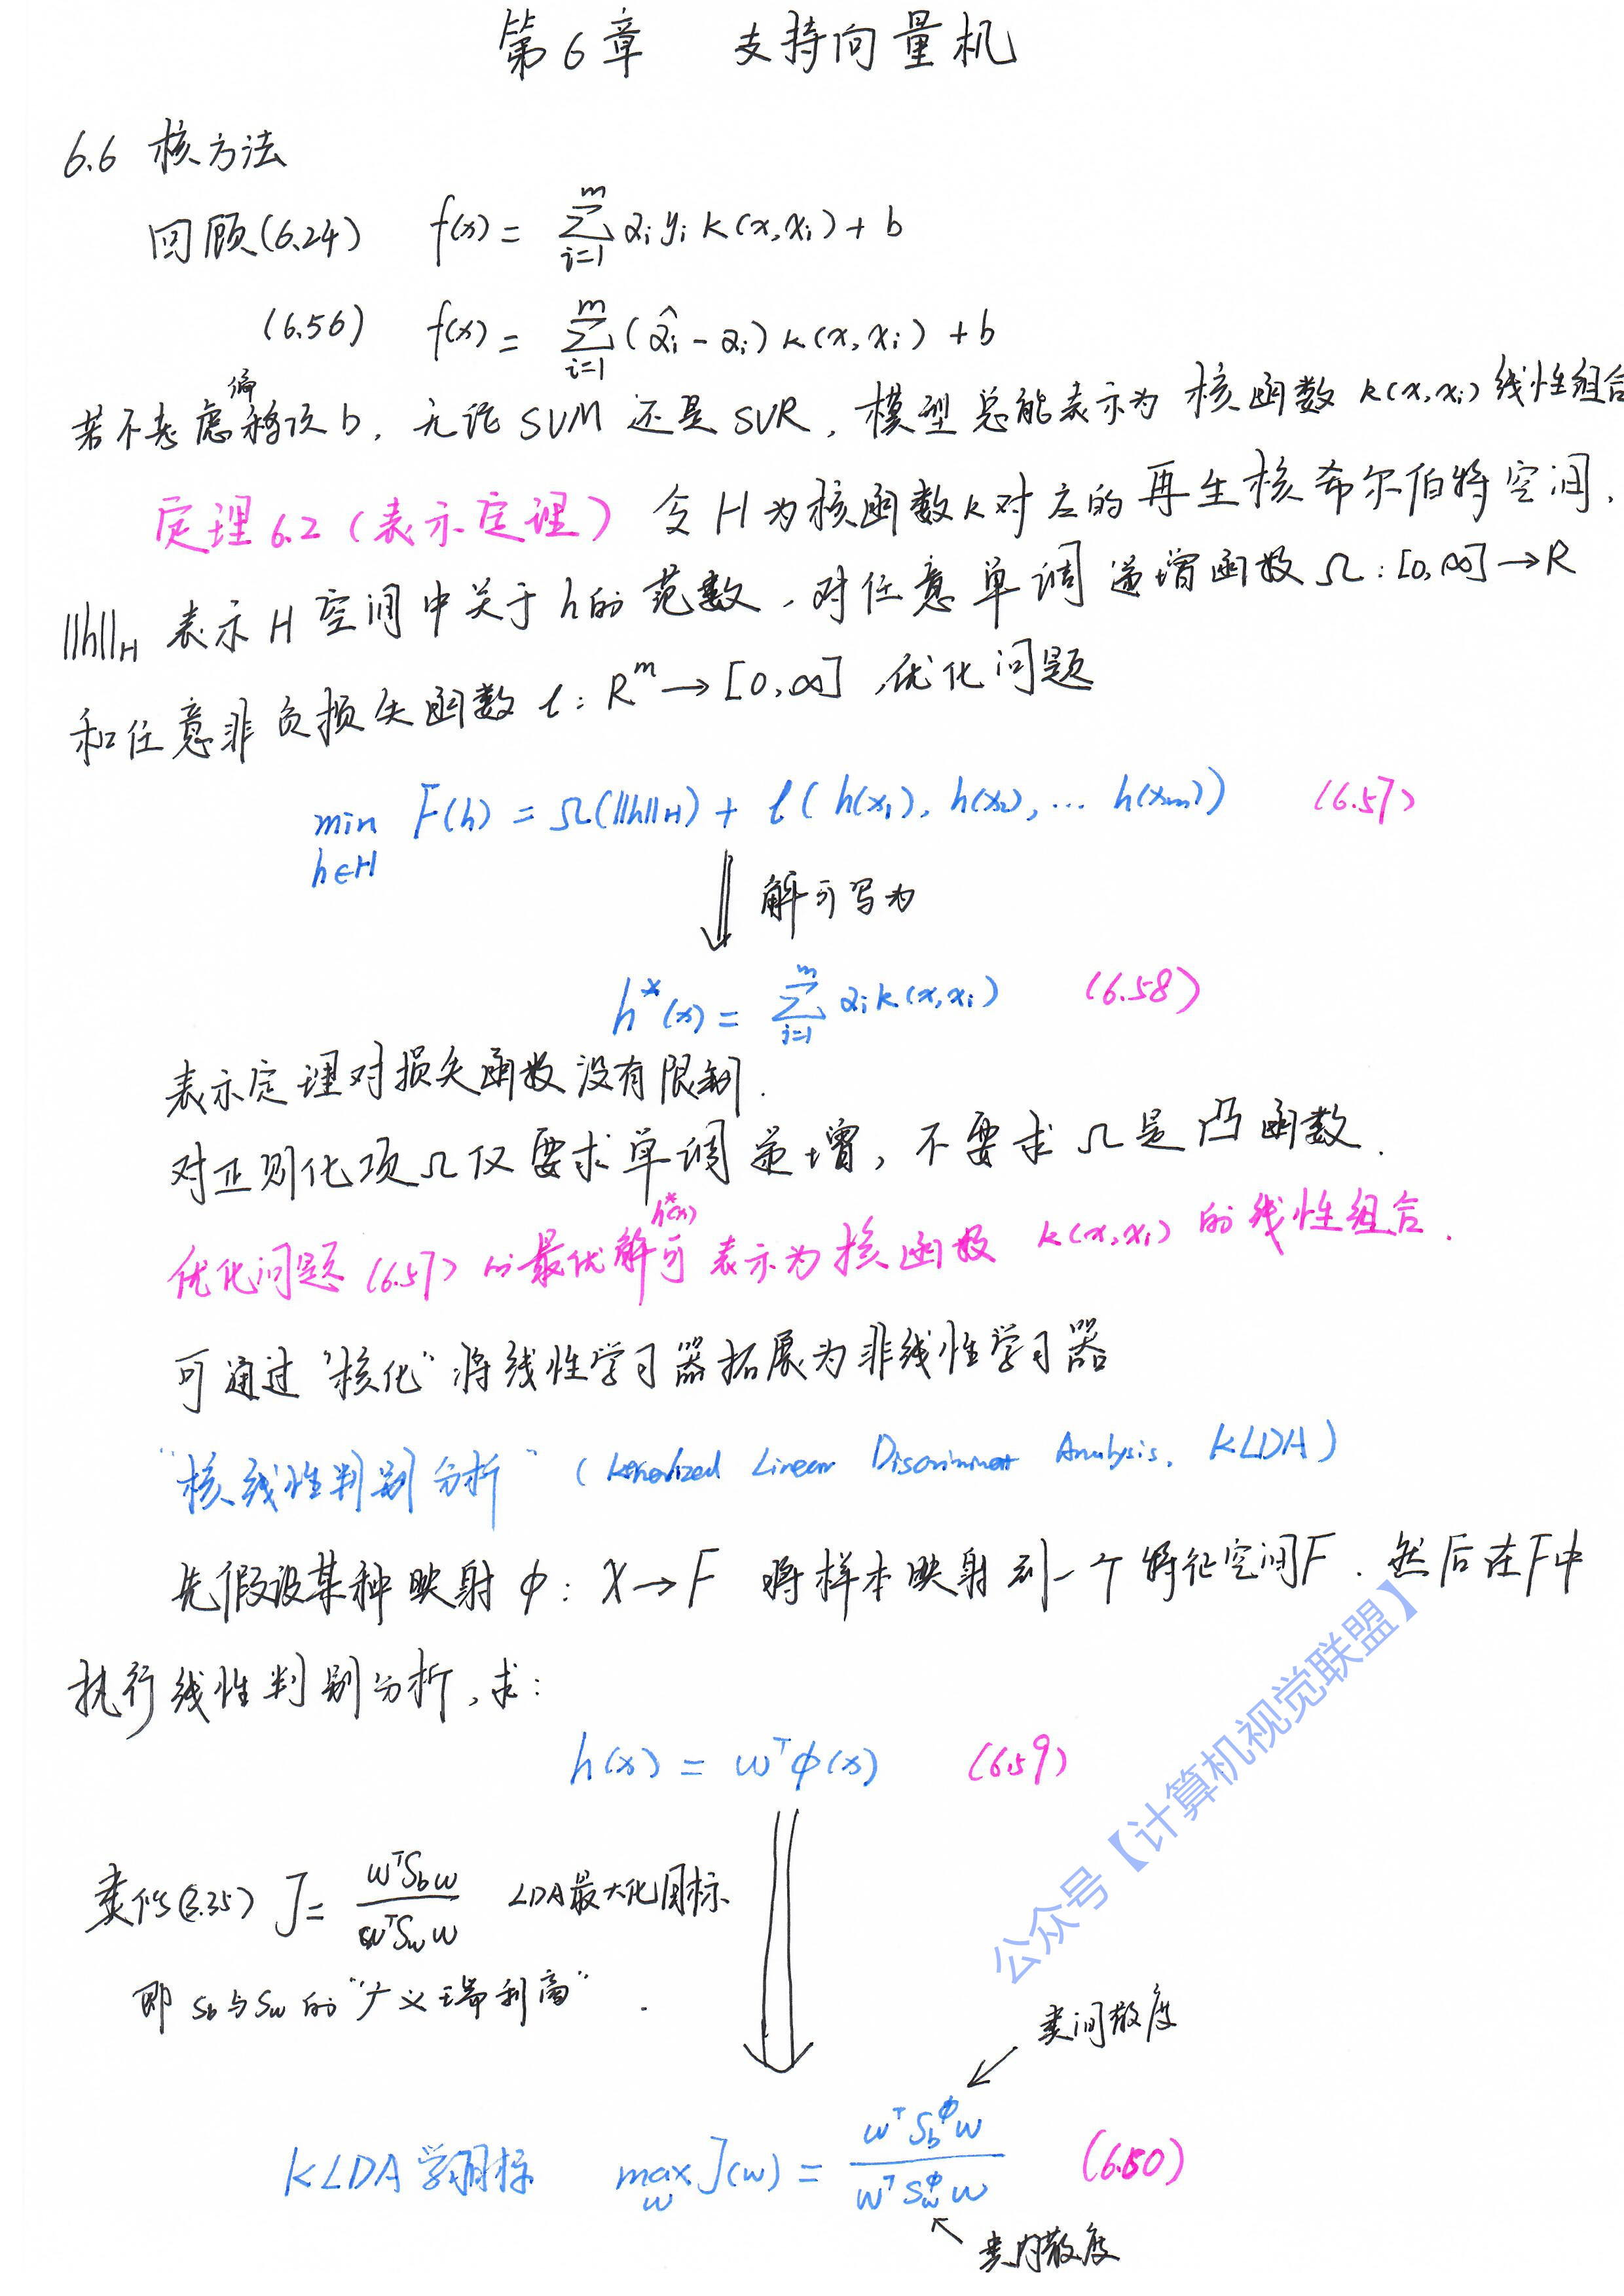 第6章 支持向量机
6.6 核方法
回顾(6.24) f(x) = ∑_{i=1}^{m} α_i y_i κ(x, x_i) + b
(6.56) f(x) = ∑_{i=1}^{m} (α̂_i - α_i) κ(x, x_i) + b
若不考虑偏移项b, 无论SVM还是SVR, 模型总能表示为核函数κ(x, x_i)线性组合
定理6.2(表示定理) 令H为核函数κ对应的再生核希尔伯特空间,
||h||_H 表示H空间中关于h的范数, 对任意单调递增函数Ω: [0,∞]→R
和任意非负损失函数 ℓ: R^m→[0,∞], 优化问题
min_{h∈H} F(h) = Ω(||h||_H) + ℓ(h(x_1), h(x_2), … h(x_m)) (6.57)
⇓ 解可写为
h*(x) = ∑_{i=1}^{m} α_i κ(x, x_i) (6.58)
表示定理对损失函数没有限制.
对正则化项Ω仅要求单调递增, 不要求Ω是凸函数.
优化问题(6.57)的最优解h*(x)可表示为核函数κ(x, x_i)的线性组合.
可通过"核化"将线性学习器拓展为非线性学习器
"核线性判别分析" (Kernelized Linear Discriminant Analysis, KLDA)
先假设某种映射 φ: X→F 将样本映射到一个特征空间F. 然后在F中
执行线性判别分析, 求:
h(x) = w^T φ(x) (6.59)
类似(3.35) J = \frac{w^T S_b w}{w^T S_w w} LDA最大化目标
即S_b与S_w的"广义瑞利商".
类间散度
KLDA学习目标 max_w J(w) = \frac{w^T S_b^φ w}{w^T S_w^φ w} (6.60)
类内散度
公众号【计算机视觉联盟】